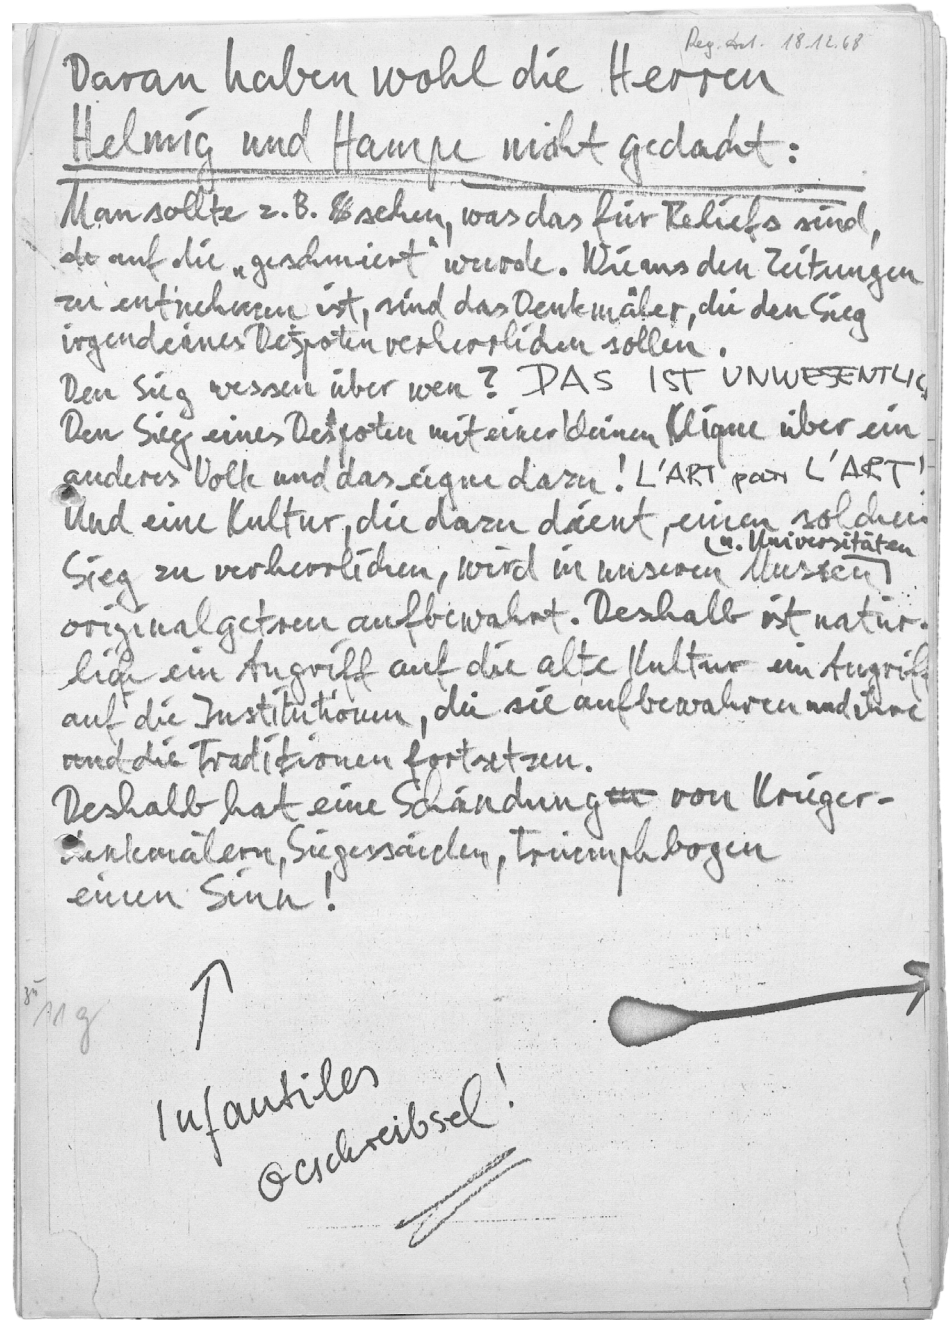 18.12.68
Daran haben wohl die Herren
Helmig und Hampe nicht gedacht:
Man sollte z.B. sehen, was das für Reliefs sind,
auf die „geschmiert" wurde. Wie aus den Zeitungen
zu entnehmen ist, sind das Denkmäler, die den Sieg
irgendeines Despoten verherrlichen sollen.
Den Sieg wessen über wen? DAS IST UNWESENTLIC
Den Sieg eines Despoten mit einer kleinen Klique über ein
anderes Volk und das eigne dazu! L'ART pour L'ART!
Und eine Kultur, die dazu dient, einen solchen
u. Universitäten
Sieg zu verherrlichen, wird in unseren Museen
originalgetreu aufbewahrt. Deshalb ist natür-
lich ein Angriff auf die alte Kultur ein Angriff
auf die Institutionen, die sie aufbewahren und ihre
und die Traditionen fortsetzen.
Deshalb hat eine Schändung von Krieger-
denkmälern, Siegessäulen, Triumphbogen
einen Sinn!
zu
11g
Infantiles
Geschreibsel!